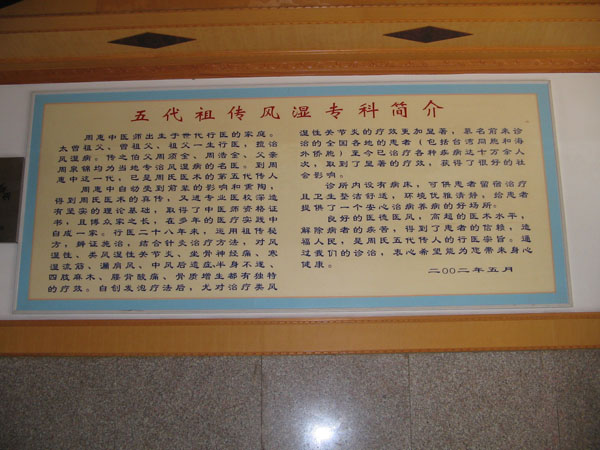 五代祖传风湿专科简介
周惠中医师出生于世代行医的家庭。
太曾祖父、曾祖父、祖父一生行医，擅治
风湿病。传之伯父周须全、周浩金、父亲
周泉锦均为当地专治风湿病的名医。到周
惠中这一代，已是周氏医术的第五代传人
周惠中自幼受到前辈的影响和熏陶，
得到周氏医术的真传，又进专业医校深造
有坚实的理论基础，取得了中医师资格证
书，且博众家之长，在多年的医疗实践中
自成一家。行医二十八年来，运用祖传秘
方，辨证施治，结合针灸治疗方法，对风
湿性、类风湿性关节炎、坐骨神经痛、寒
湿流筋、漏肩风、中风后遗症半身不遂、
四肢麻木、腰背酸痛、骨质增生都有独特
的疗效。自创发泡疗法后，尤对治疗类风
湿性关节炎的疗效更加显著，慕名前来诊
治的全国各地的患者（包括台湾同胞和海
外侨胞）至今已治疗各种疾病达十万余人
次，取到了显著的疗效，获得了很好的社
会影响。
诊所内设有病床，可供患者留宿治疗
且卫生整洁舒适，环境优雅清静，给患者
提供了一个安心治病养病的好场所。
良好的医德医风，高超的医术水平，
解除病者的疾苦，得到了患者的信赖，造
福人民，是周氏五代传人的行医宗旨。通
过我们的诊治，衷心希望能为您带来身心
健康。
二００二年五月